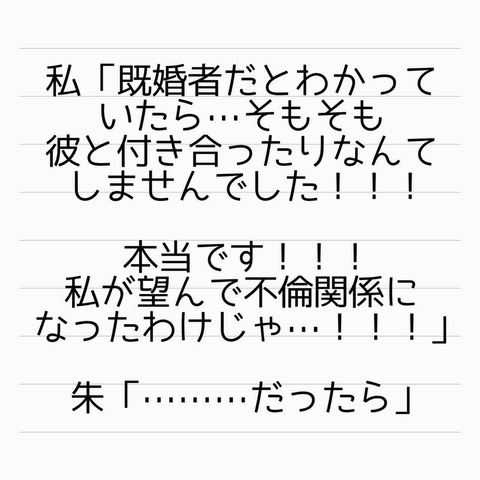 私「既婚者だとわかって
いたら…そもそも
彼と付き合ったりなんて
しませんでした！！！
本当です！！！
私が望んで不倫関係に
なったわけじゃ…！！！」
朱「………だったら」